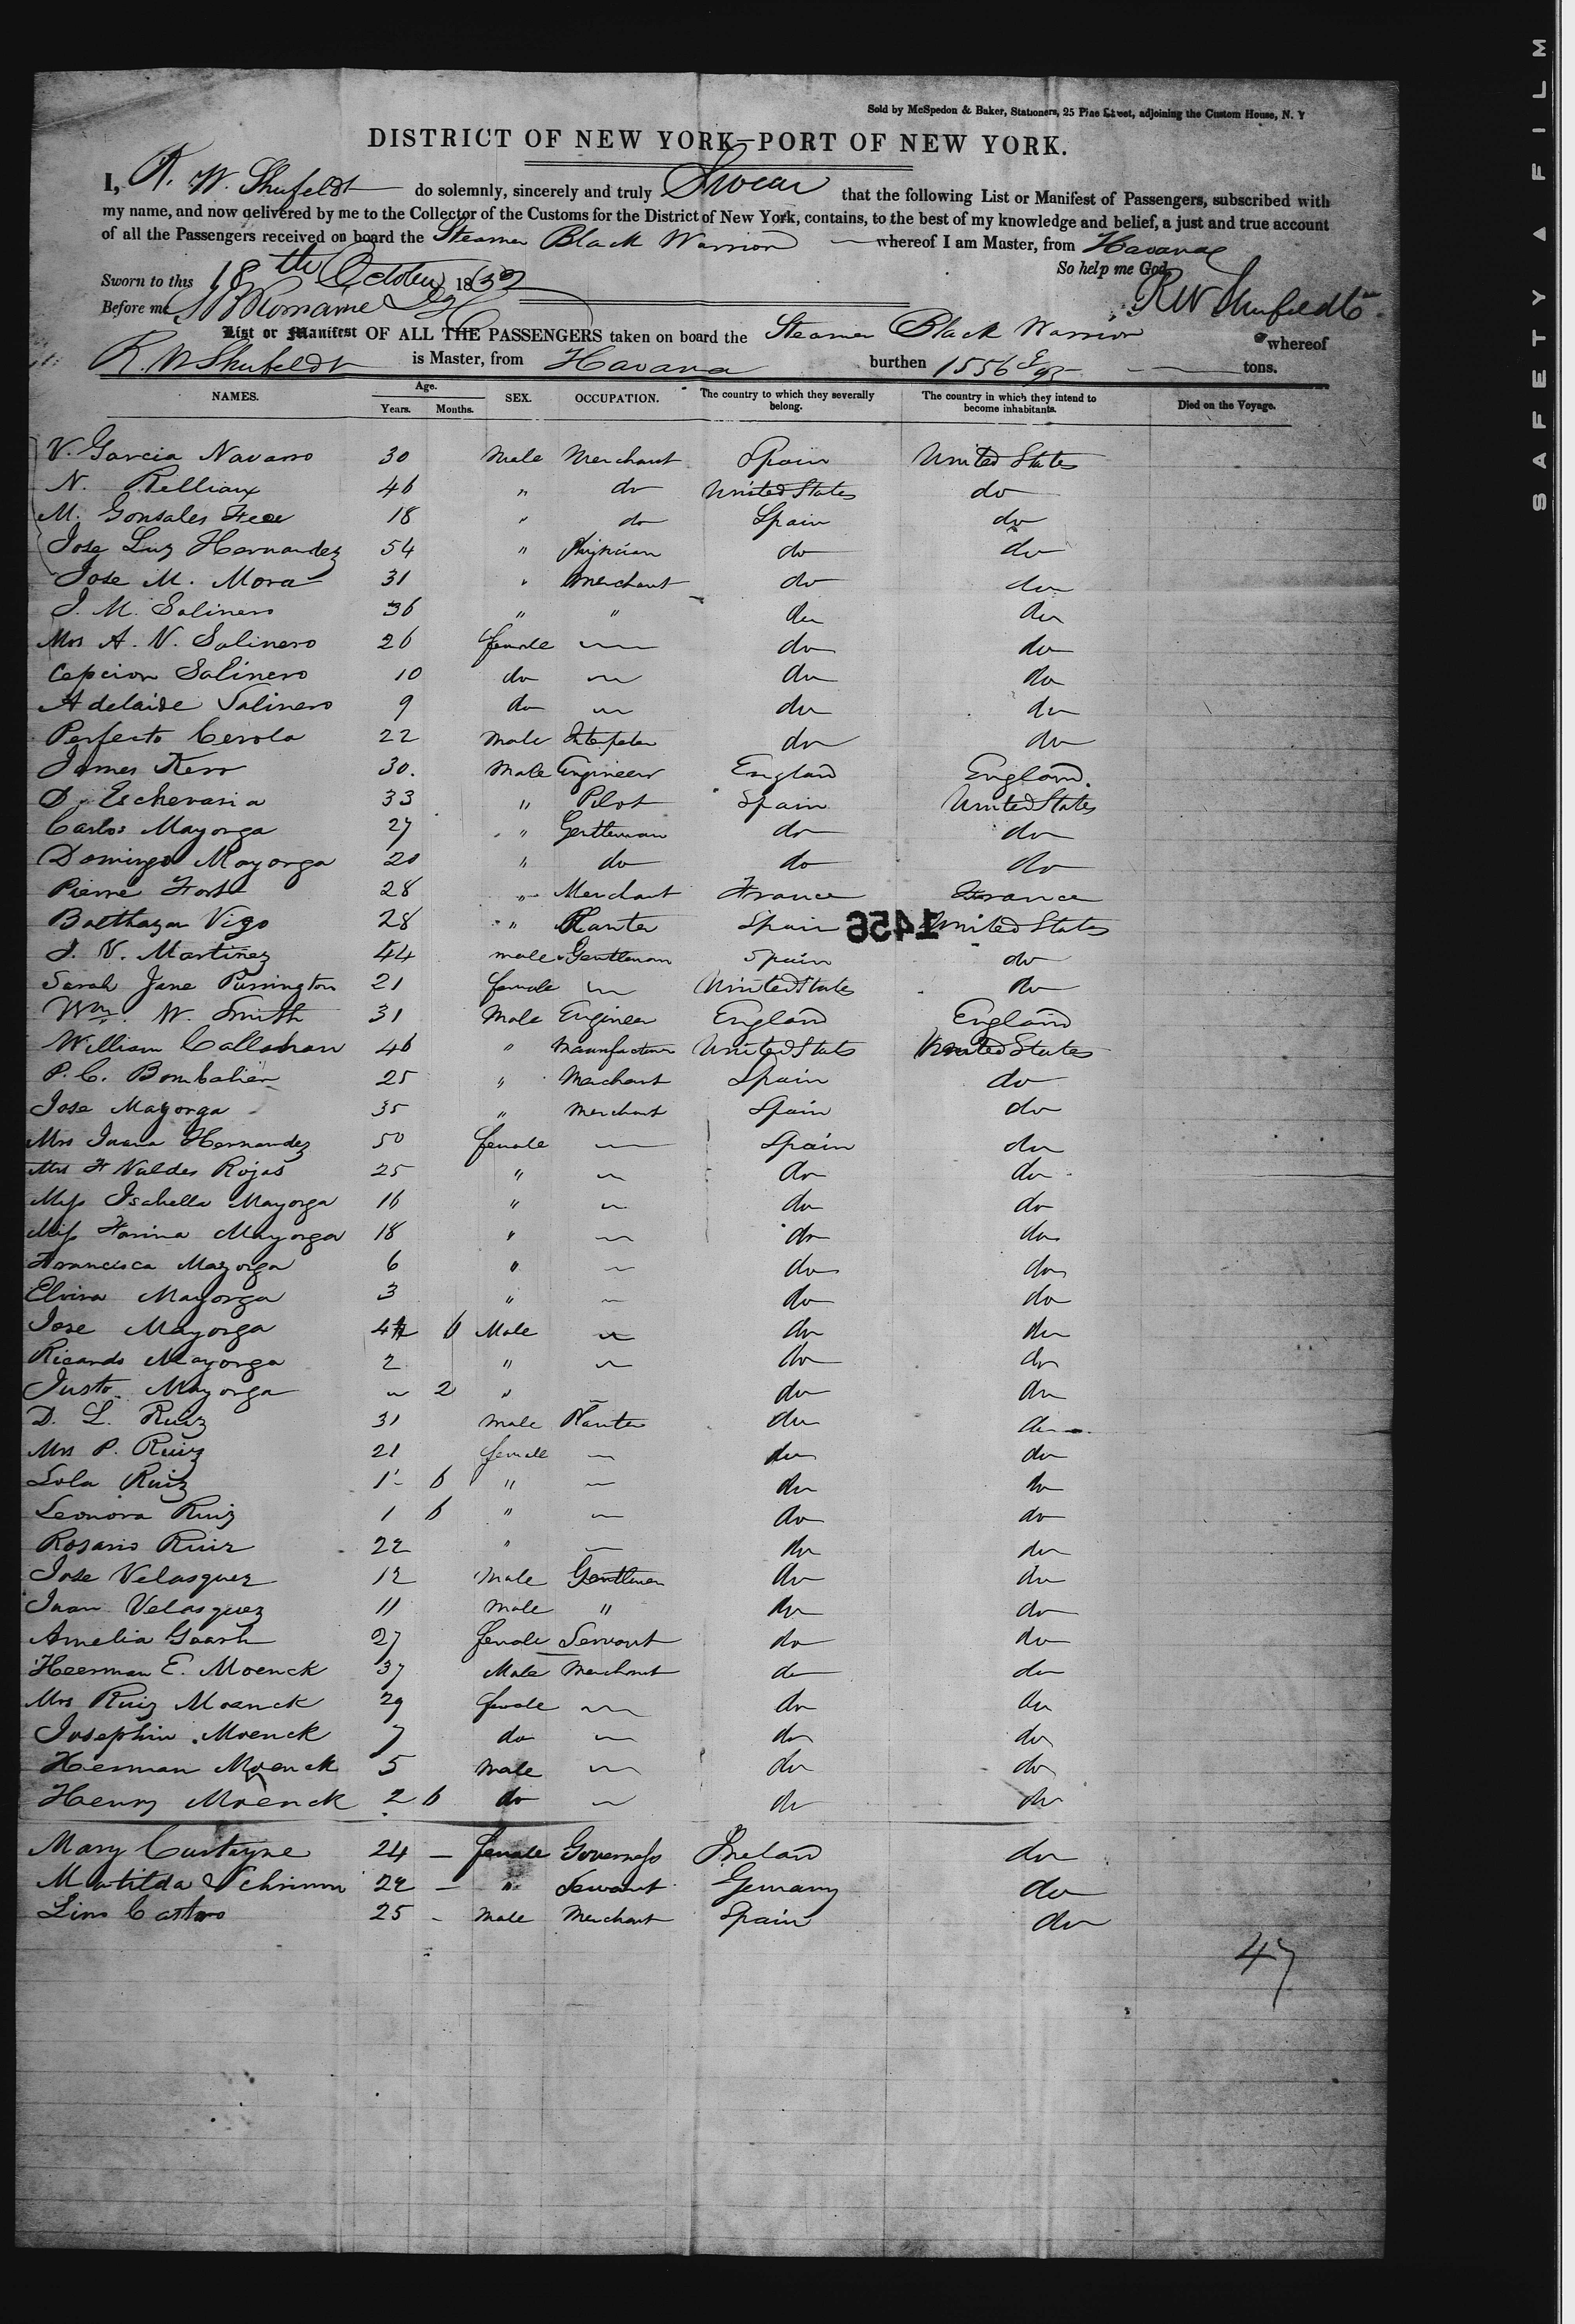 Sold by McSpedon & Baker, Stationers, 25 Pine Street, adjoining the Custom House, N. Y
DISTRICT OF NEW YORK—PORT OF NEW YORK.
I, R. W. Shufeldt do solemnly, sincerely and truly Swear that the following List or Manifest of Passengers, subscribed with
my name, and now delivered by me to the Collector of the Customs for the District of New York, contains, to the best of my knowledge and belief, a just and true account
of all the Passengers received on board the Steamer Black Warrior whereof I am Master, from Havana
So help me God.
Sworn to this 18th October 18
Before me R W Shufeldt
List or Manifest OF ALL THE PASSENGERS taken on board the Steamer Black Warrior whereof
R. W Shufeldt is Master, from Havana burthen 1556 tons.
NAMES. Age. Years. Months. SEX. OCCUPATION. The country to which they severally belong. The country in which they intend to become inhabitants. Died on the Voyage.
V. Garcia Navarro 30 Male Merchant Spain United States
N. Relliaux 46 " do United States do
M. Gonsales 18 " do Spain do
Jose Luz Hernandez 54 " Physician do do
Jose M. Mora 31 " Merchant do do
J. M. Salinero 36 " " do do
Mrs A. V. Salinero 26 female — do do
Cepcion Salinero 10 do — do do
Adelaide Salinero 9 do — do do
Perfecto Cerola 22 Male do do
James Kerr 30. Male Engineer England England.
D. Echevaria 33 " Pilot Spain United States
Carlos Mayorga 27 " Gentleman do do
Domingo Mayorga 20 " do do do
Pierre 28 " Merchant France France
Balthazar Vigo 28 " Planter Spain United States
1456
J. V. Martinez 44 male Gentleman Spain do
Sarah Jane Purrington 21 female — United States do
Wm. W. Smith 31 Male Engineer England England
William Callahan 46 " Manufacturer United Stats United States
P. C. Bombalier 25 " Merchant Spain do
Jose Mayorga 35 " Merchant Spain do
Mrs Juana Hernandez 50 female — Spain do
Mrs F Valdes Rojas 25 " — do do
Miss Isabella Mayorga 16 " — do do
Miss Farina Mayorga 18 " — do do
Francisca Mayorga 6 " — do do
Elvira Mayorga 3 " — do do
Jose Mayorga 4 6 Male — do do
Ricardo Mayorga 2 " — do do
Justo Mayorga — 2 " — do do
D. L. Ruiz 31 male Planter do do
Mrs P. Ruiz 21 female — do do
Lola Ruiz 1 6 " — do do
Leonora Ruiz 1 6 " — do do
Rosario Ruiz 22 " — do do
Jose Velasquez 12 Male Gentleman do do
Juan Velasquez 11 Male " do do
Amelia 27 female Servant do do
Heerman E. Moenck 37 Male Merchant do do
Mrs Ruiz Moenck 29 female — do do
Josephin Moenck 7 do — do do
Herman Moenck 5 Male — do do
Henry Moenck 2 6 do — do do
Mary 24 — female Governess Ireland do
Matilda Schrimm 22 — " Servant Germany do
Lino Castro 25 - Male Merchant Spain do
47
SAFETY ▲ FILM